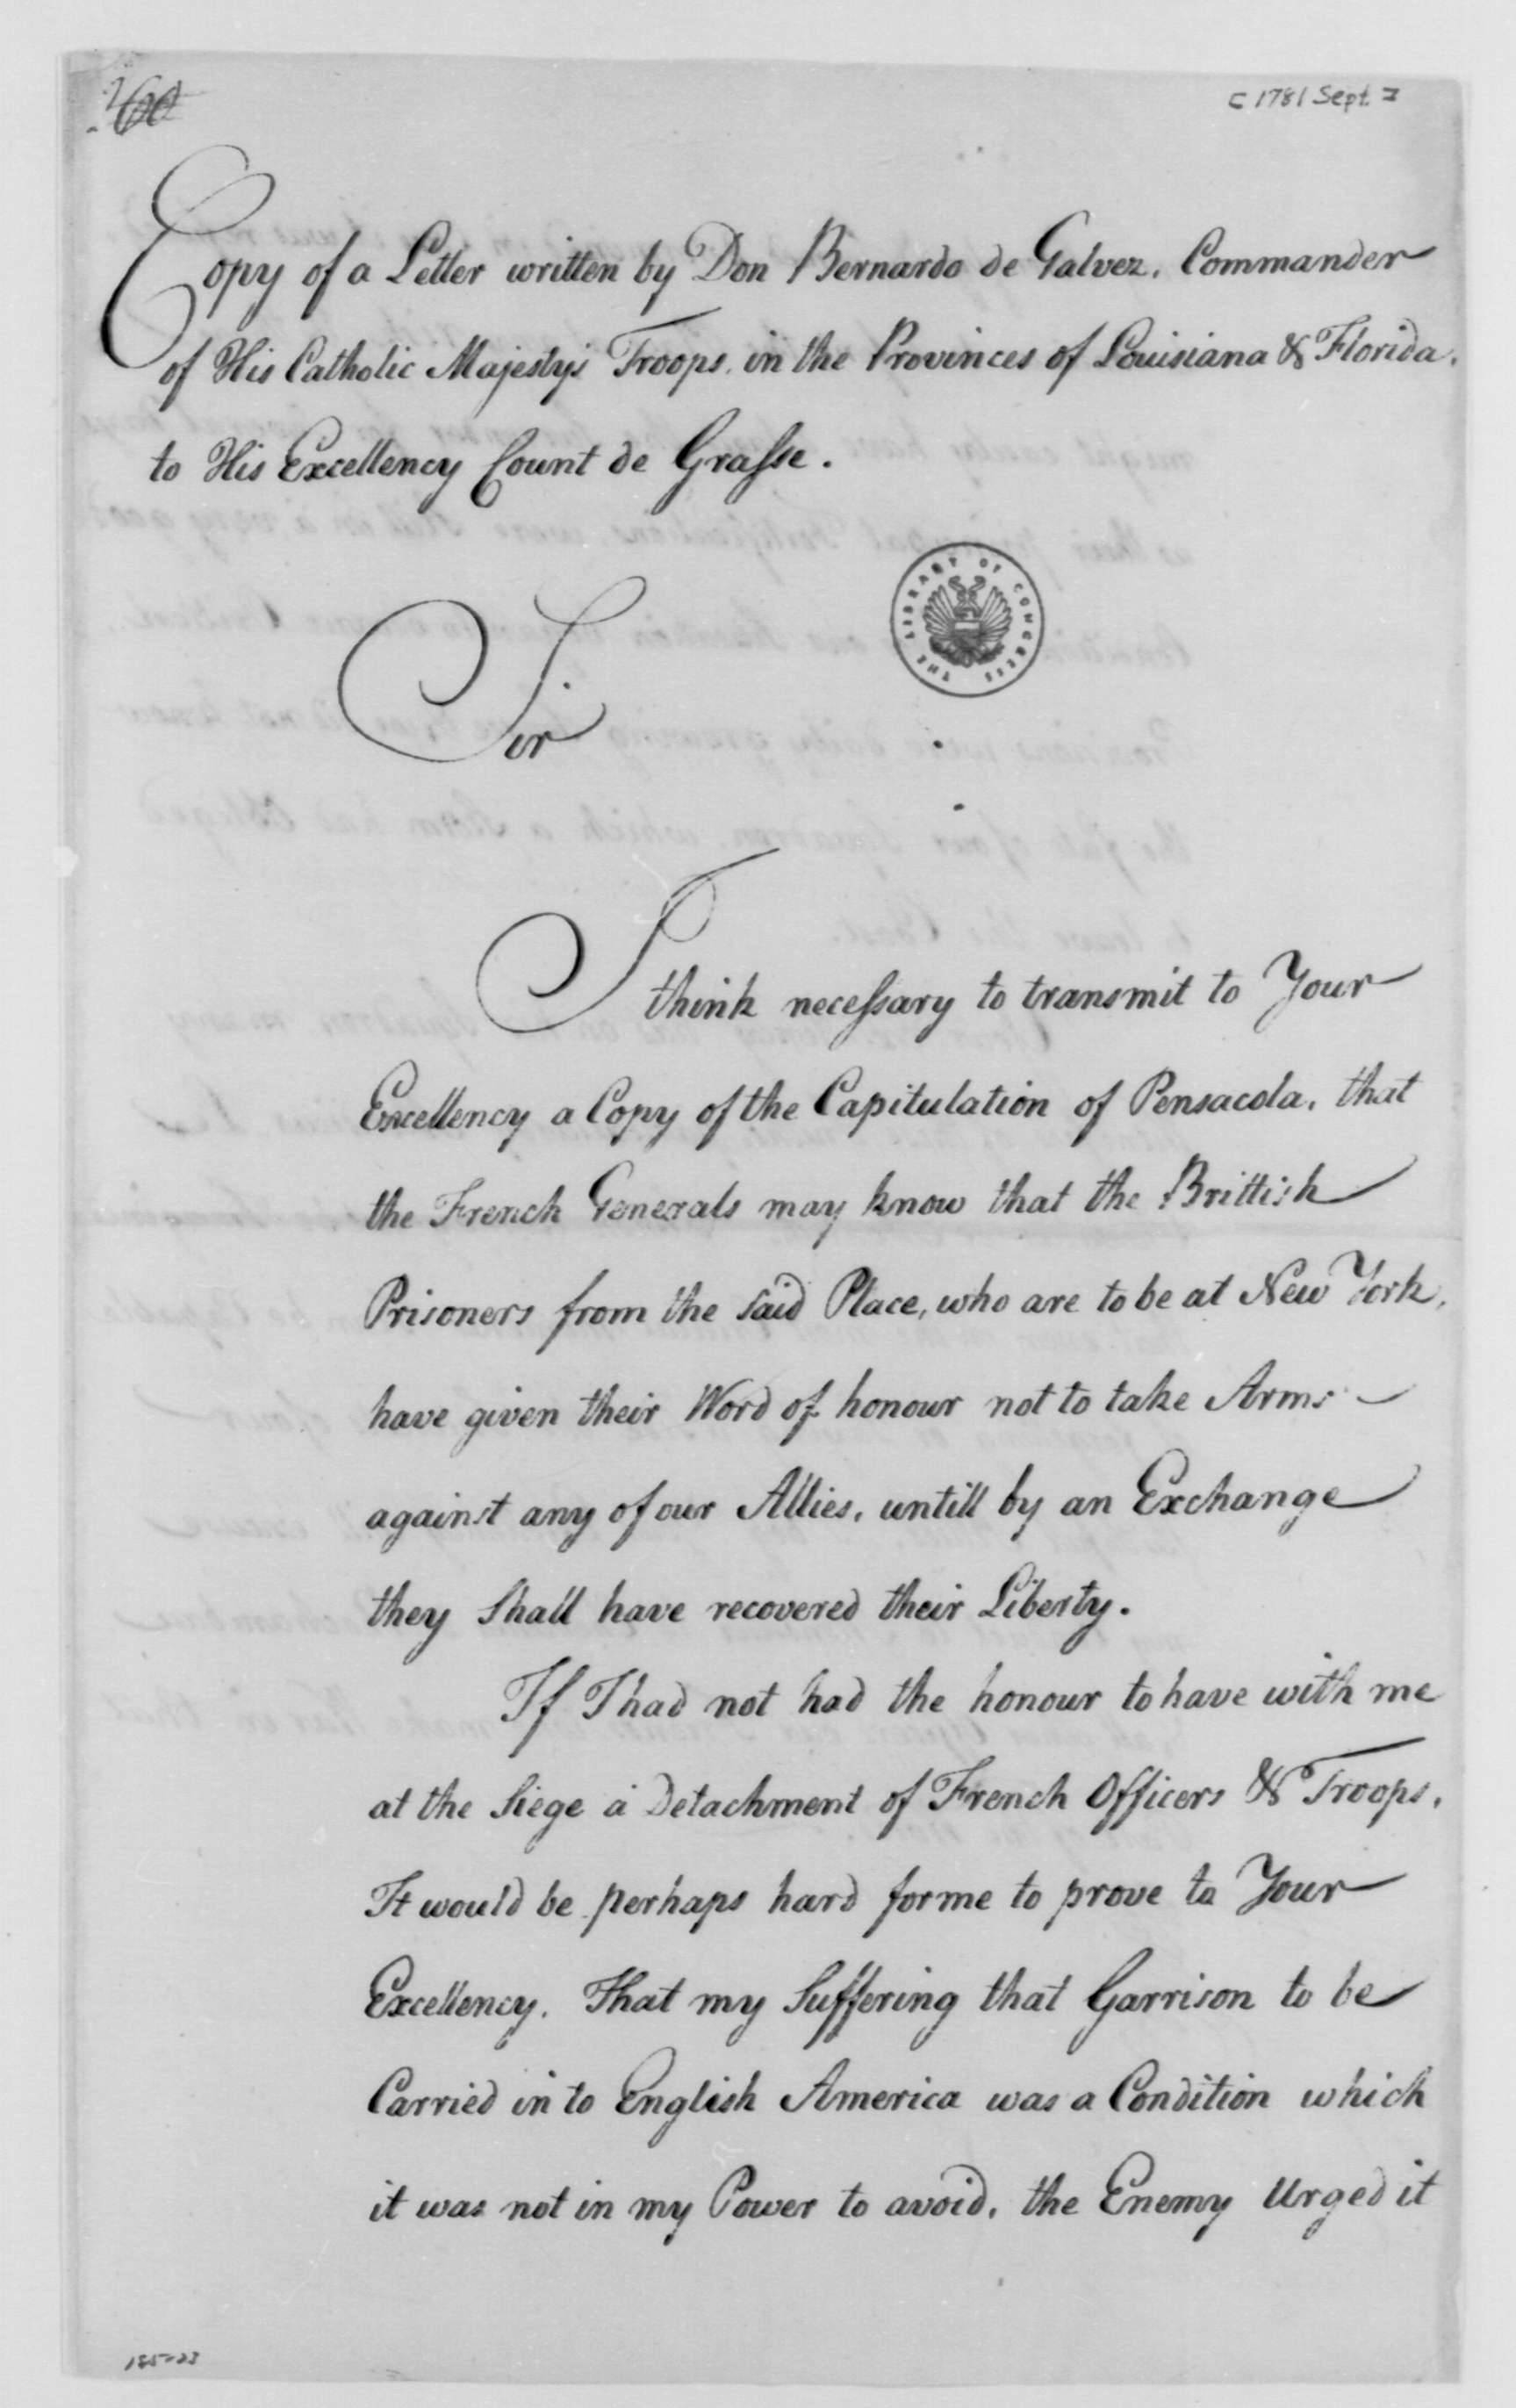 [1781 Sept.]
Copy of a Letter written by Don Bernardo de Galvez, Commander
of His Catholic Majesty's Troops, in the Provinces of Louisiana & Florida,
to His Excellency Count de Grasse.
THE LIBRARY OF CONGRESS
Sir
I think necessary to transmit to Your
Excellency a Copy of the Capitulation of Pensacola, that
the French Generals may know that the Brittish
Prisoners from the said Place, who are to be at New York,
have given their Word of honour not to take Arms
against any of our Allies, untill by an Exchange
they Shall have recovered their Liberty.
If I had not had the honour to have with me
at the Siege a Detachment of French Officers & Troops,
It would be perhaps hard for me to prove to Your
Excellency, That my Suffering that Garrison to be
Carried in to English America was a Condition which
it was not in my Power to avoid, the Enemy Urged it